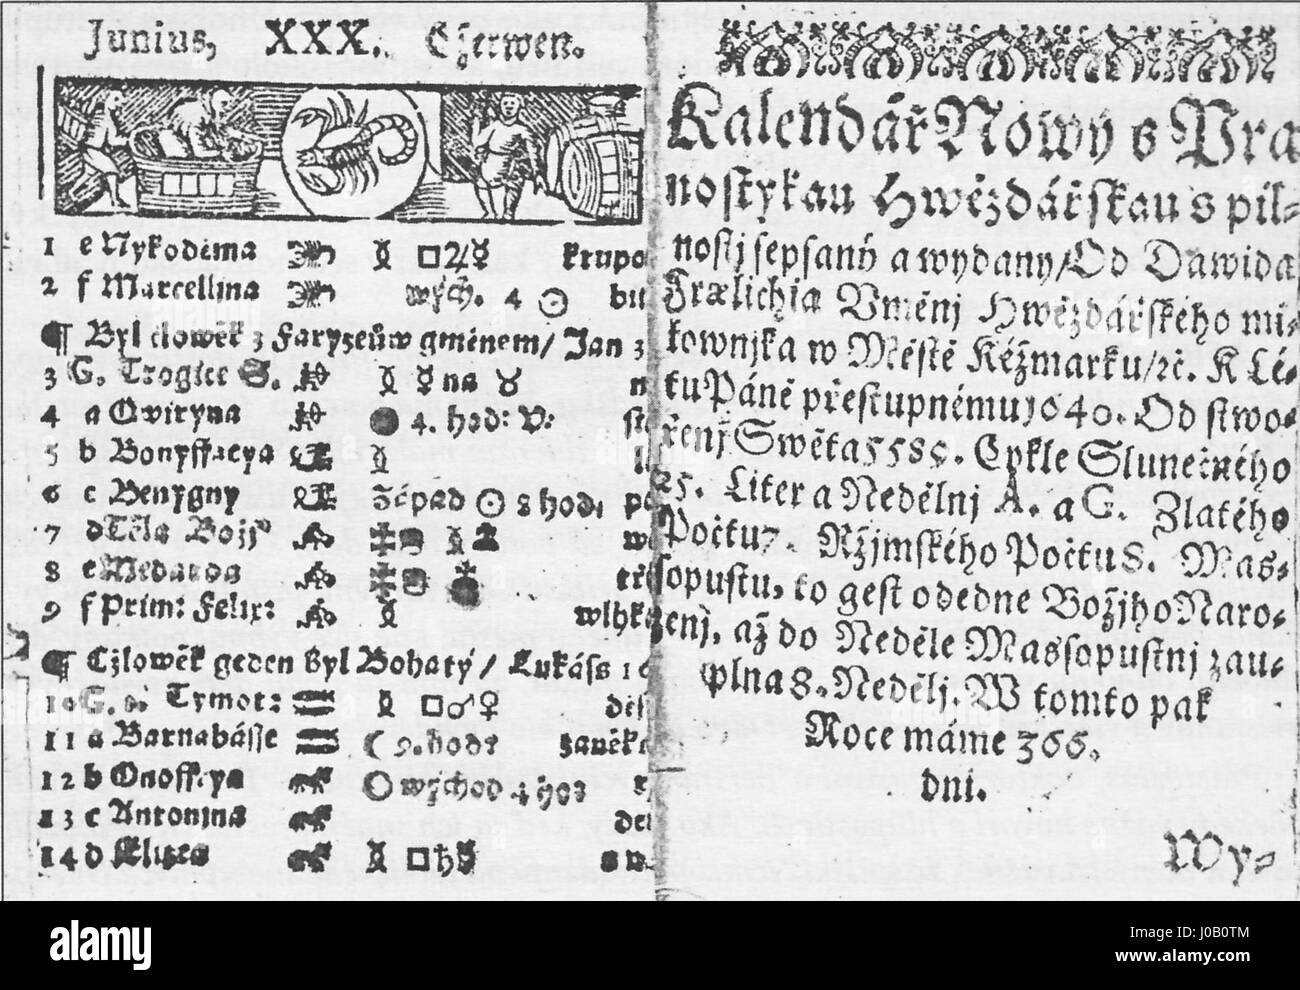 Junius, XXX. Cžerwen.
1 e Nykodéma krupo
2 f Marcellina wých. 4 bu
¶ Byl člowěk z Faryzeůw gménem/ Jan 3
3 G. Trogice S. na
4 a Qwiryna 4. hod: V. ste
5 b Bonyffacya
6 c Benygny Západ 8 hod,
7 d Těla Bož w
8 e Medarda
9 f Prim: Felix: wlhke
¶ Cžlowěk geden byl Bohatý/ Lukásse 16
10 G. 2. Tymot: dess
11 a Barnabásse 9. hod: zaněka
12 b Onoffrya wýchod 4 hod
13 c Antonina
14 d
Kalendář Nowý s Pra
nostykau Hwězdářskau s pil-
nostj sepsaný a wydaný/ Od Dawida
Frælichia Vměnj Hwězdářského mi-
lownjka w Městě Kéžmarku/ ꝛc. K Lé-
tu Páně přestupnému 1640. Od stwo-
řenj Swěta 5585. Cykle Slunečného
25. Litera Nedělnj A. a G. Zlatého
Počtu 7. Ržjmského Počtu 8. Mas-
opustu, to gest ode dne Božjho Naro-
zenj, až do Neděle Massopustnj zau-
plna 8. Nedělj. W tomto pak
Roce máme 366.
dnj.
Wy-
alamy
Image ID: J0B0TM
www.alamy.com